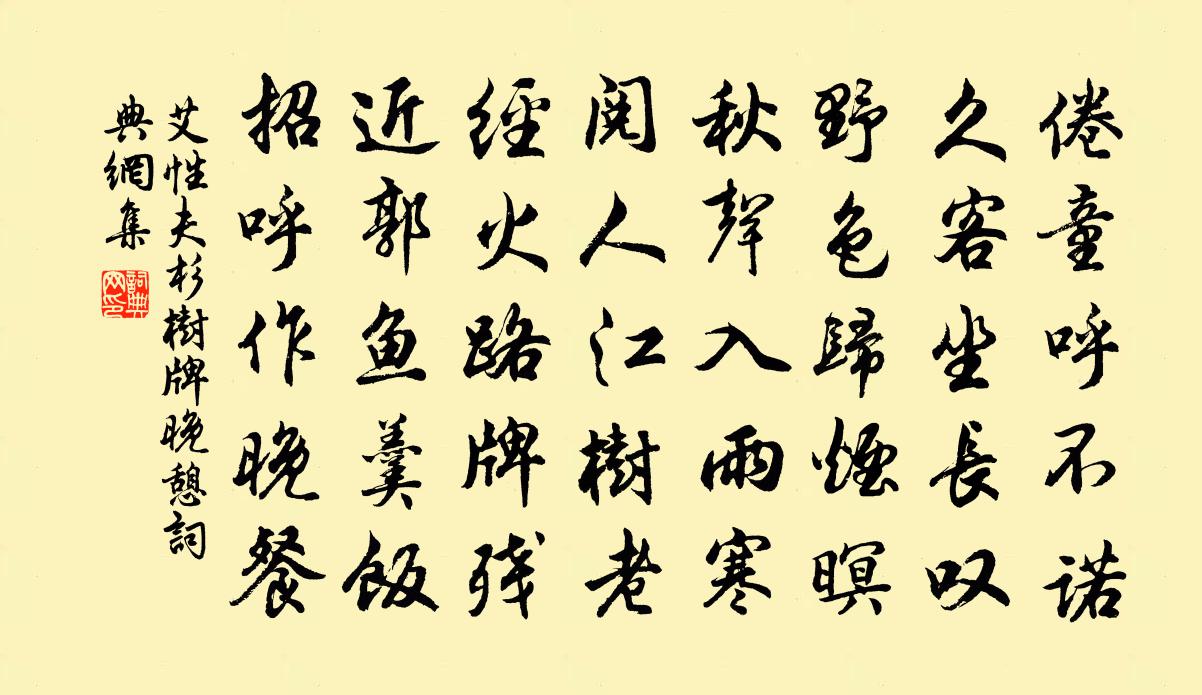 倦童呼不诺
久客坐长叹
野色歸煙暝
秋聲入雨寒
閱人江樹老
經火路牌残
近郭鱼羹飯
招呼作晚餐
艾性夫杉樹牌晚憩詞
典網集
詞典網印